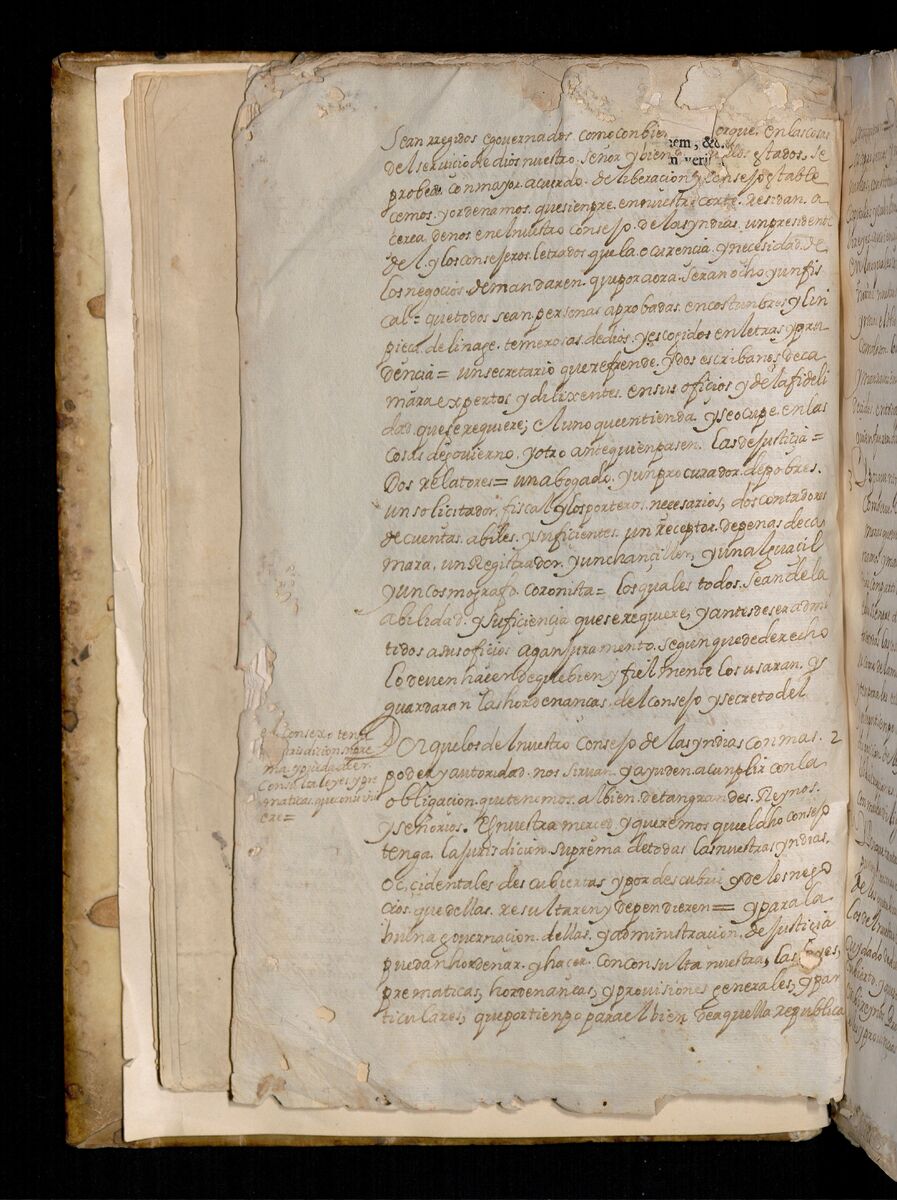 Sean rregidos egovernados como conbie orque. en las cosas
del servicio de dios nuestro Señor y bien de llos estados, se
probea con mayor acuerdo. deliberacion y consejo estable
cemos. y ordenamos. que siempre. en nuestra corte. Residan. a
cerca denos en el nuestro consejo. de las yndias. un presidente
del. y los consejeros. letrados que la ocurencia. y necesidad. de
los negocios. demandaren. que por aora. Seran ocho y un fis
cal = que todos sean personas aprobadas. en costumbres y lin
pieça. de linage. temerosas. de dios. y escogidos en letras y pru
dencia = un secretario que refrende. y dos escribanos de ca
mara expertos y dilixentes. en sus oficios y de la fideli
dad. que se requiere; el uno que entienda y se ocupe. en las
cosas de govierno. y otro ante quien pasen. las de justiçia =
Dos relatores = un abogado. y un procurador. de pobres.
un solicitador. fiscal y los porteros. necesarios, dos contadores
de cuentas. abiles. y suficientes. un reçeptor. de penas de ca
mara, un Registrador. y un chanciller, y un alguaçil
y un cosmografo. coronista = los quales todos. Sean de la
abilidad. y suficiençia que se requiere, y antes de ser admi
tidos a sus oficios agan juramento. segun que de derecho
lo deven hacer de que bien y fielmente los usaran. y
guardaran las hordenanças. del consejo y secreto del
Porque los del nuestro consejo de las yndias con mas. 2
poder y autoridad. nos sirvan. y ayuden. a cunplir con la
obligacion. que tenemos. al bien. de tan grandes. Reynos.
y señorios. Es nuestra merced. y queremos que el dho consejo
tenga. la jurisdicion. suprema de todas las nuestras yndias.
occidentales descubiertas y por descubrir y de los nego
cios. que dellas. resultaren y dependieren = y para la
buena governacion. dellas. y administracion. de justiçia
puedan hordenar. y hacer. con consulta nuestra, las leyes,
prematicas, hordenanças, y provisiones generales, y par
ticulares, que por tienpo para el bien de aquella republica
el Consexo tenga
jurisdicion supre
ma, y pueda hacer
consulta leyes y pre
maticas. que convini
ere =
nem, &c.